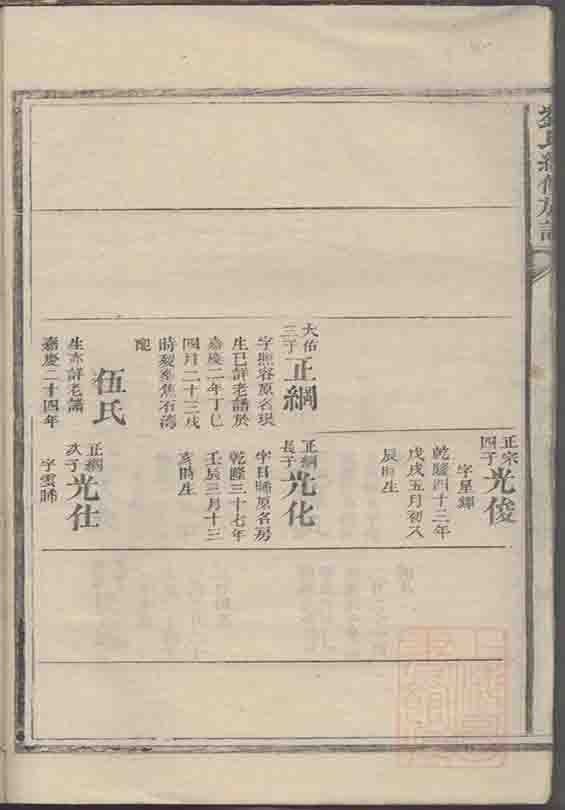 氏續修族譜
正宗
四子
光俊
字星輝
乾隆四十三年
戊戌五月初八
辰時生
大佑
三子
正綱
字照容原名珙
生已詳老譜於
嘉慶二年丁巳
四月二十三戌
時歿葬焦石灣
配
伍氏
生亦詳老譜
嘉慶二十四年
正綱
長子
光化
字日晞原名房
乾隆三十七年
壬辰三月十三
亥時生
正綱
次子
光仕
字雲晞